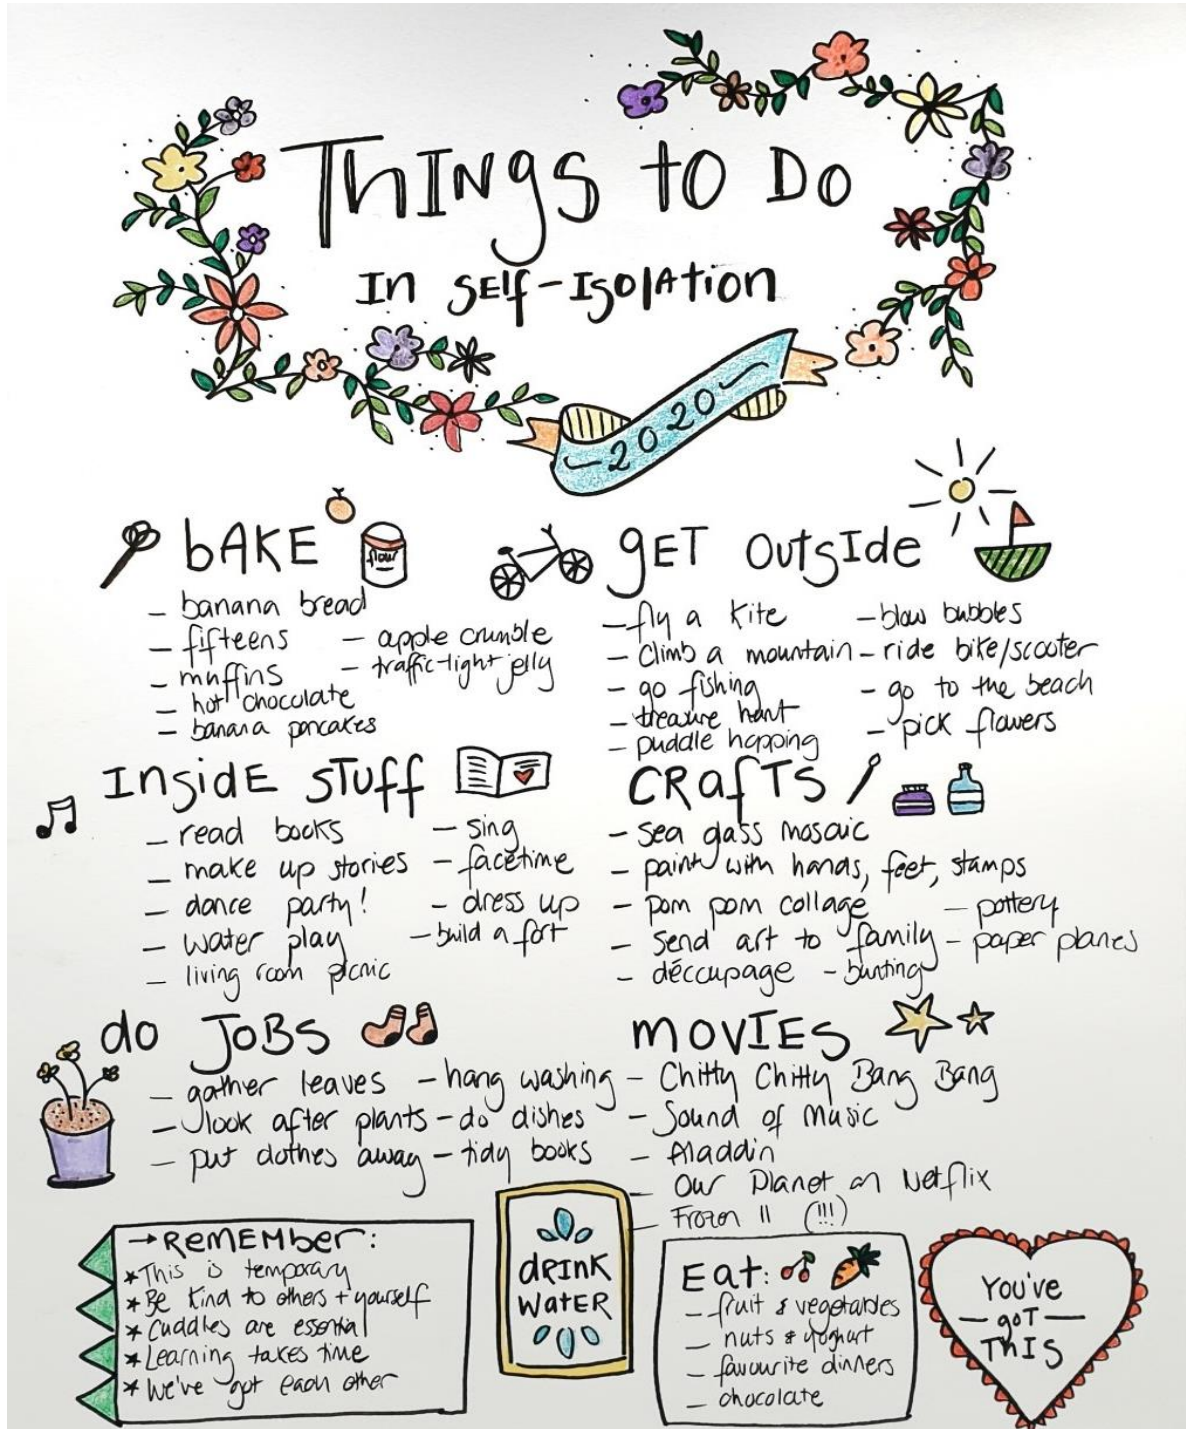 Things to Do
In Self-Isolation
-2020-
bAKE
flour
- banana bread
- fifteens
- muffins
- hot chocolate
- banana pancakes
- apple crumble
- traffic-light jelly
gET OutsIde
- fly a kite
- climb a mountain
- go fishing
- treasure hunt
- puddle hopping
- blow bubbles
- ride bike/scooter
- go to the beach
- pick flowers
InsidE sTuff
- read books
- make up stories
- dance party!
- water play
- living room picnic
- sing
- facetime
- dress up
- build a fort
CRafTS
- sea glass mosaic
- paint with hands, feet, stamps
- pom pom collage
- send art to family
- découpage
- bunting
- pottery
- paper planes
do JoBS
- gather leaves
- look after plants
- put clothes away
- hang washing
- do dishes
- tidy books
mOVIES
- Chitty Chitty Bang Bang
- Sound of Music
- Aladdin
- Our Planet on Netflix
- Frozen II (!!!)
→ REMEMber:
* This is temporary
* Be kind to others + yourself
* Cuddles are essential
* Learning takes time
* We've got each other
dRInK
WatER
Eat:
- fruit & vegetables
- nuts & yoghurt
- favourite dinners
- chocolate
You've
- goT -
ThIS